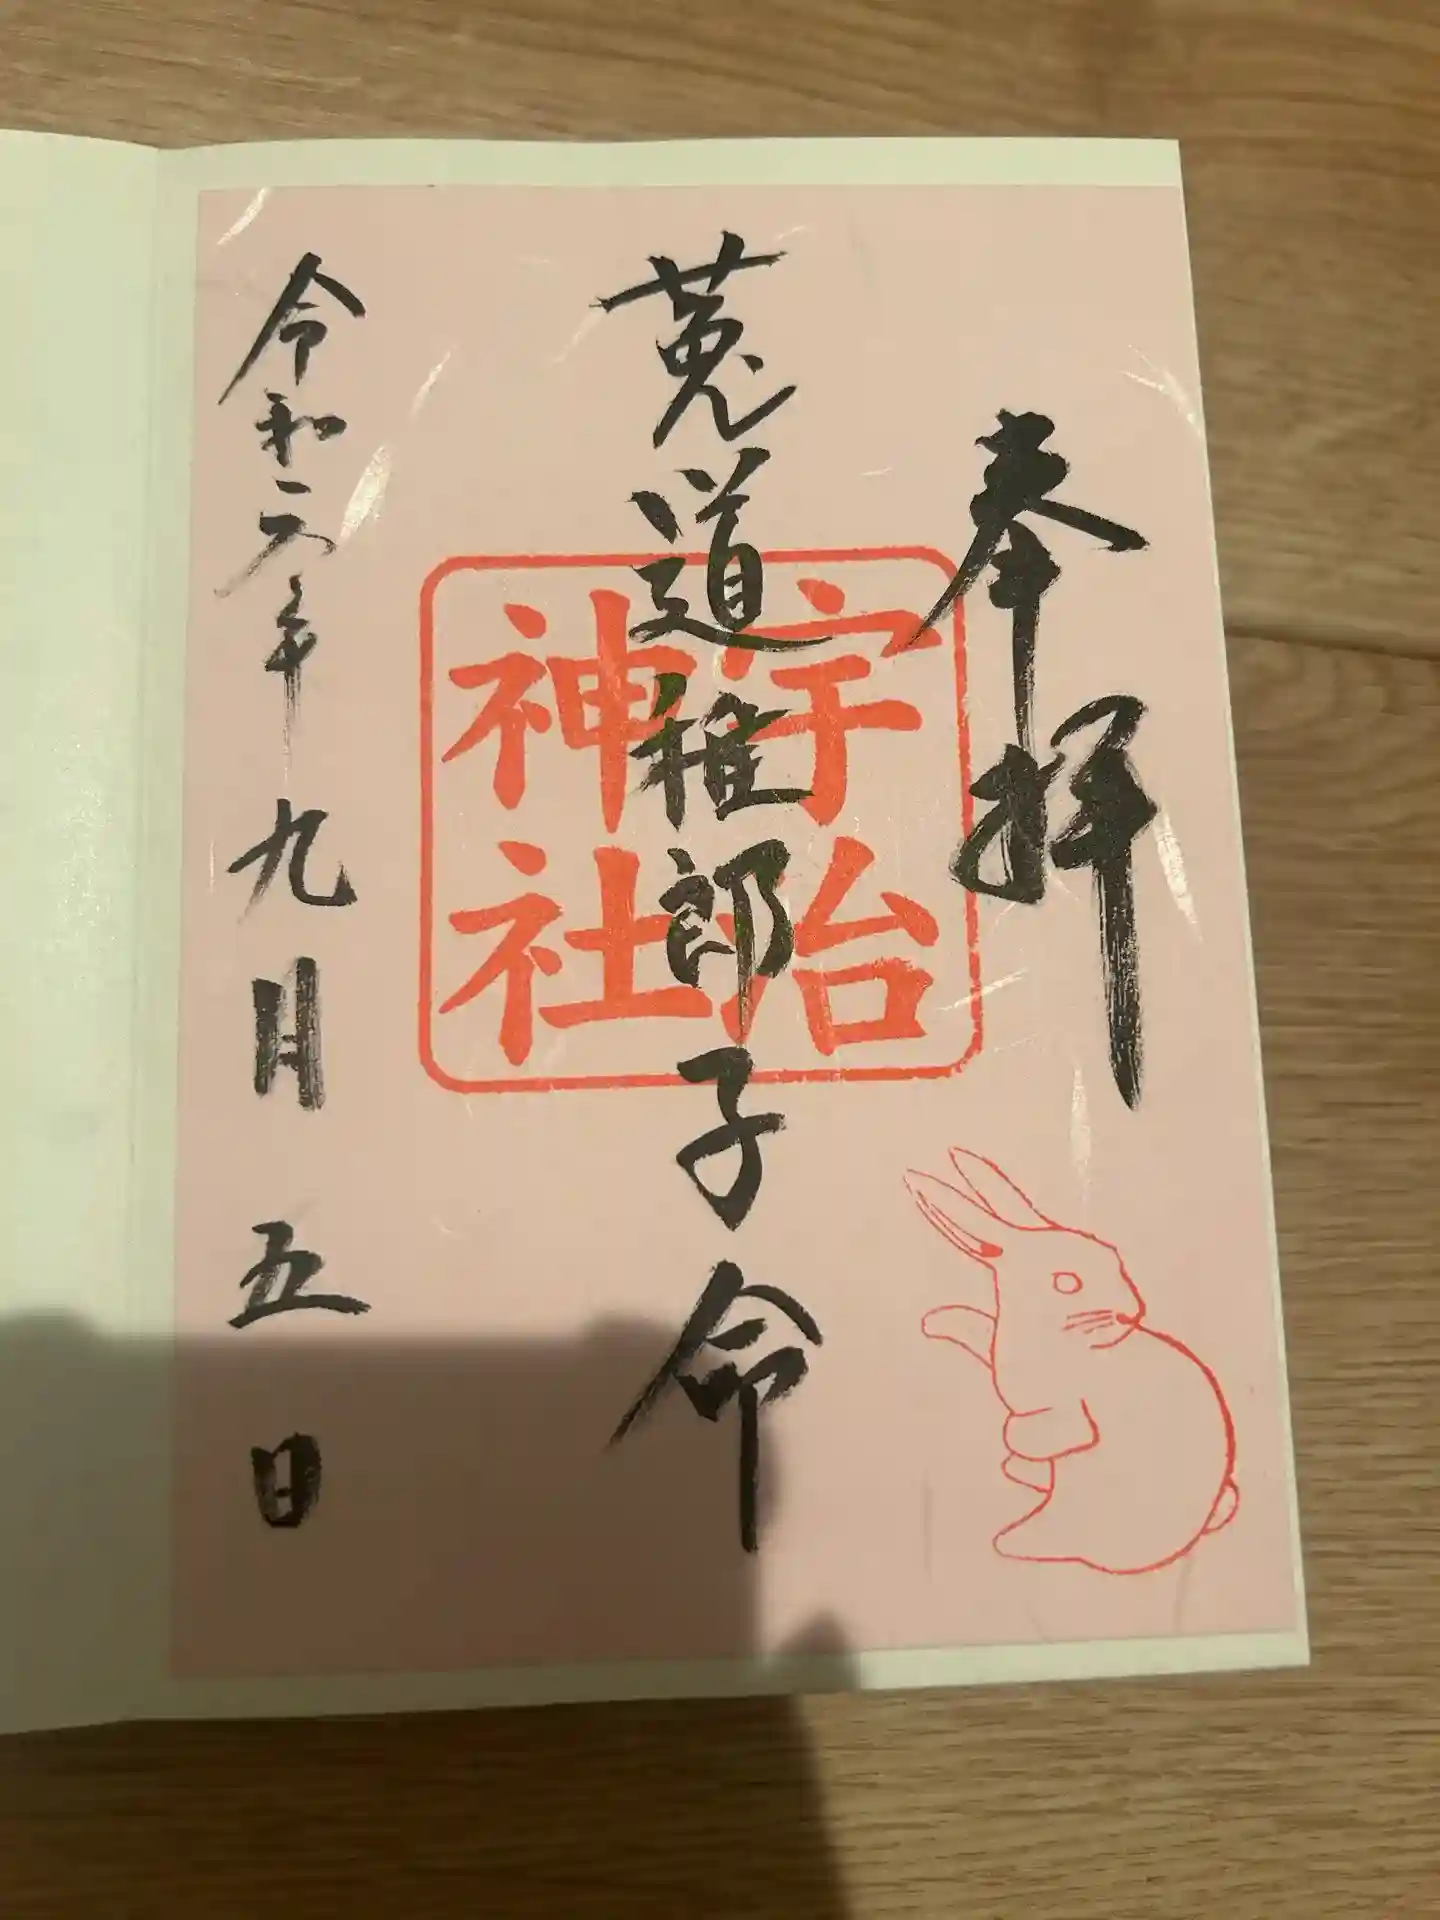 奉拝
菟道稚郎子命
宇治
神社
令和六年九月五日